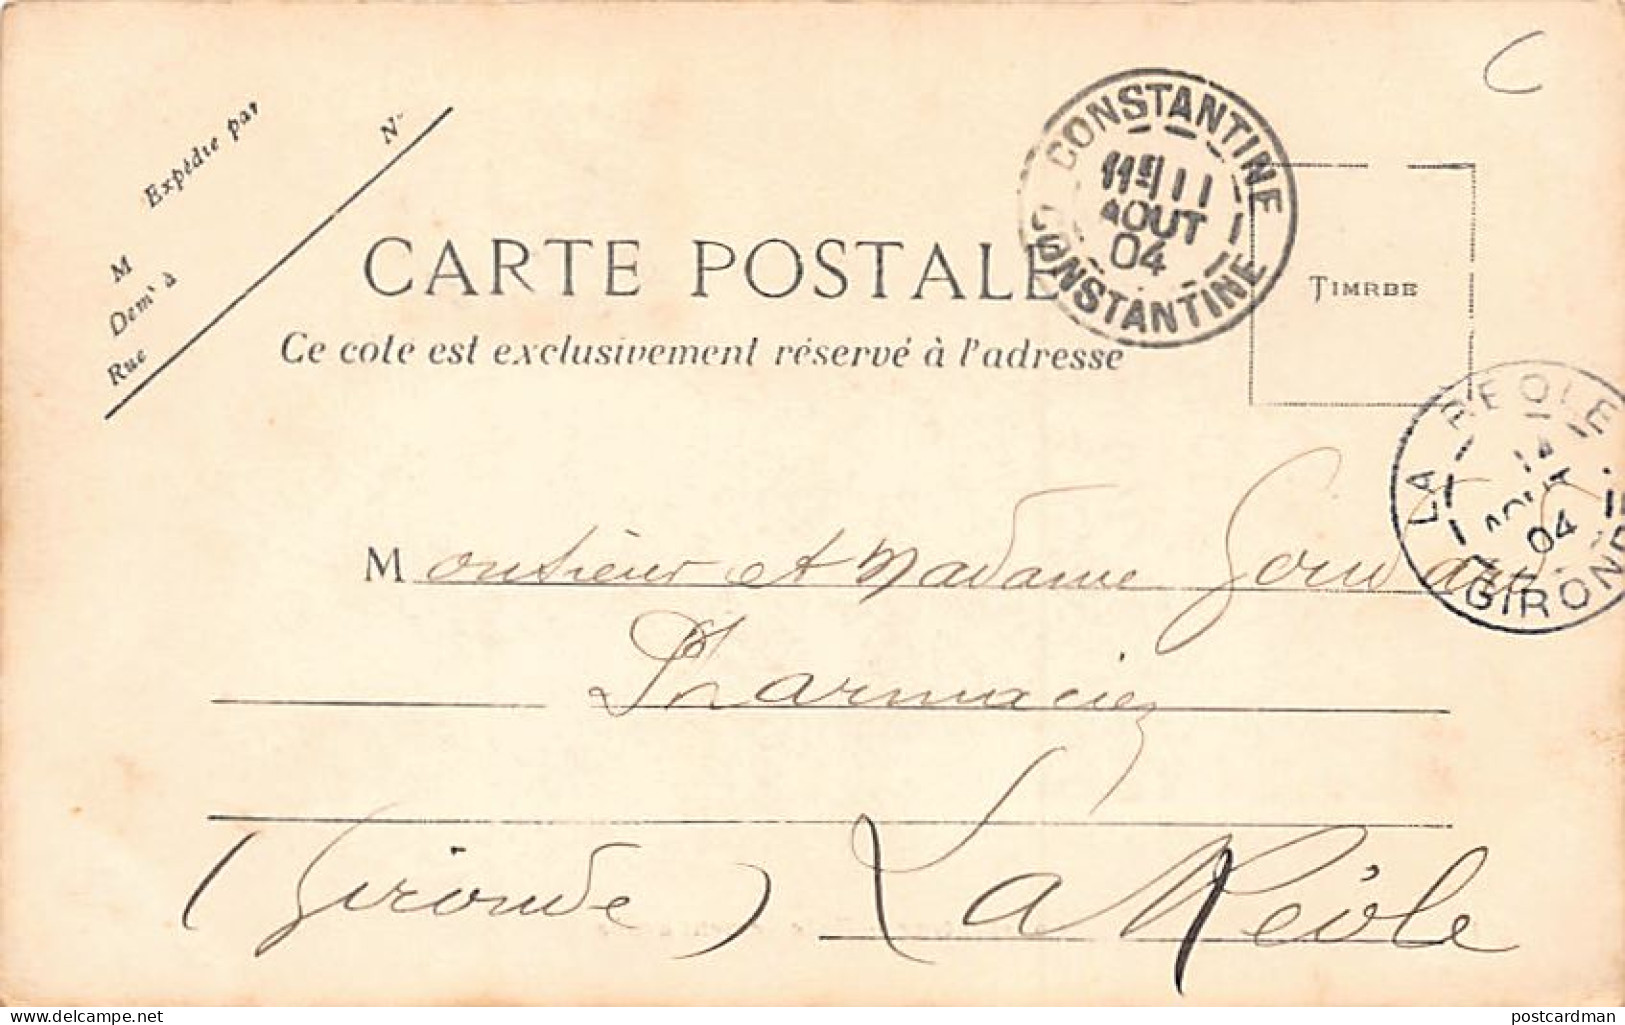 C
Expédié par
M
Demt à
Rue
N°
CARTE POSTALE
Ce côté est exclusivement réservé à l'adresse
TIMRBE
CONSTANTINE
11E 11
AOUT
04
CONSTANTINE
LA REOLE
14
AOUT
04
GIRONDE
Monsieur et Madame
Pharmacien
La Réole
(Gironde)
www.delcampe.net
postcardman